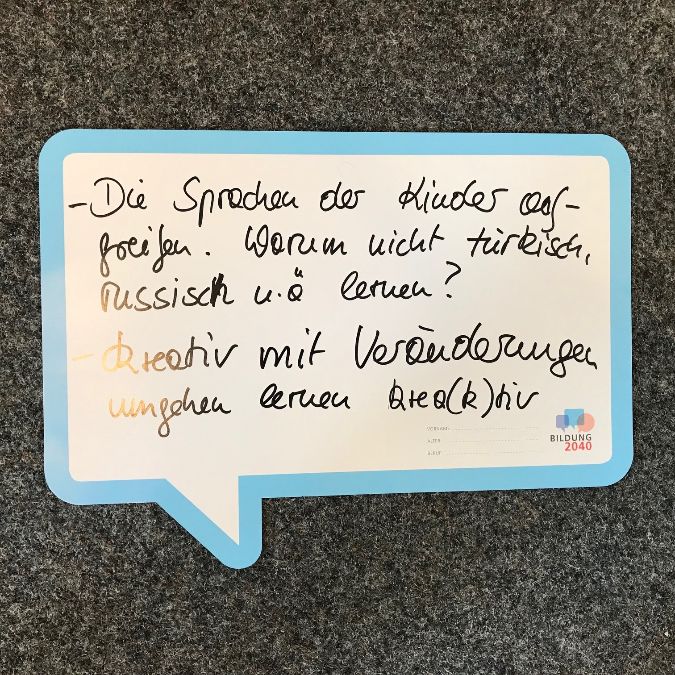 - Die Sprachen der Kinder auf-
greifen. Warum nicht türkisch,
russisch u.ä lernen?
- Kreativ mit Veränderungen
umgehen lernen krea(k)tiv
VORNAME
ALTER
BERUF
BILDUNG
2040